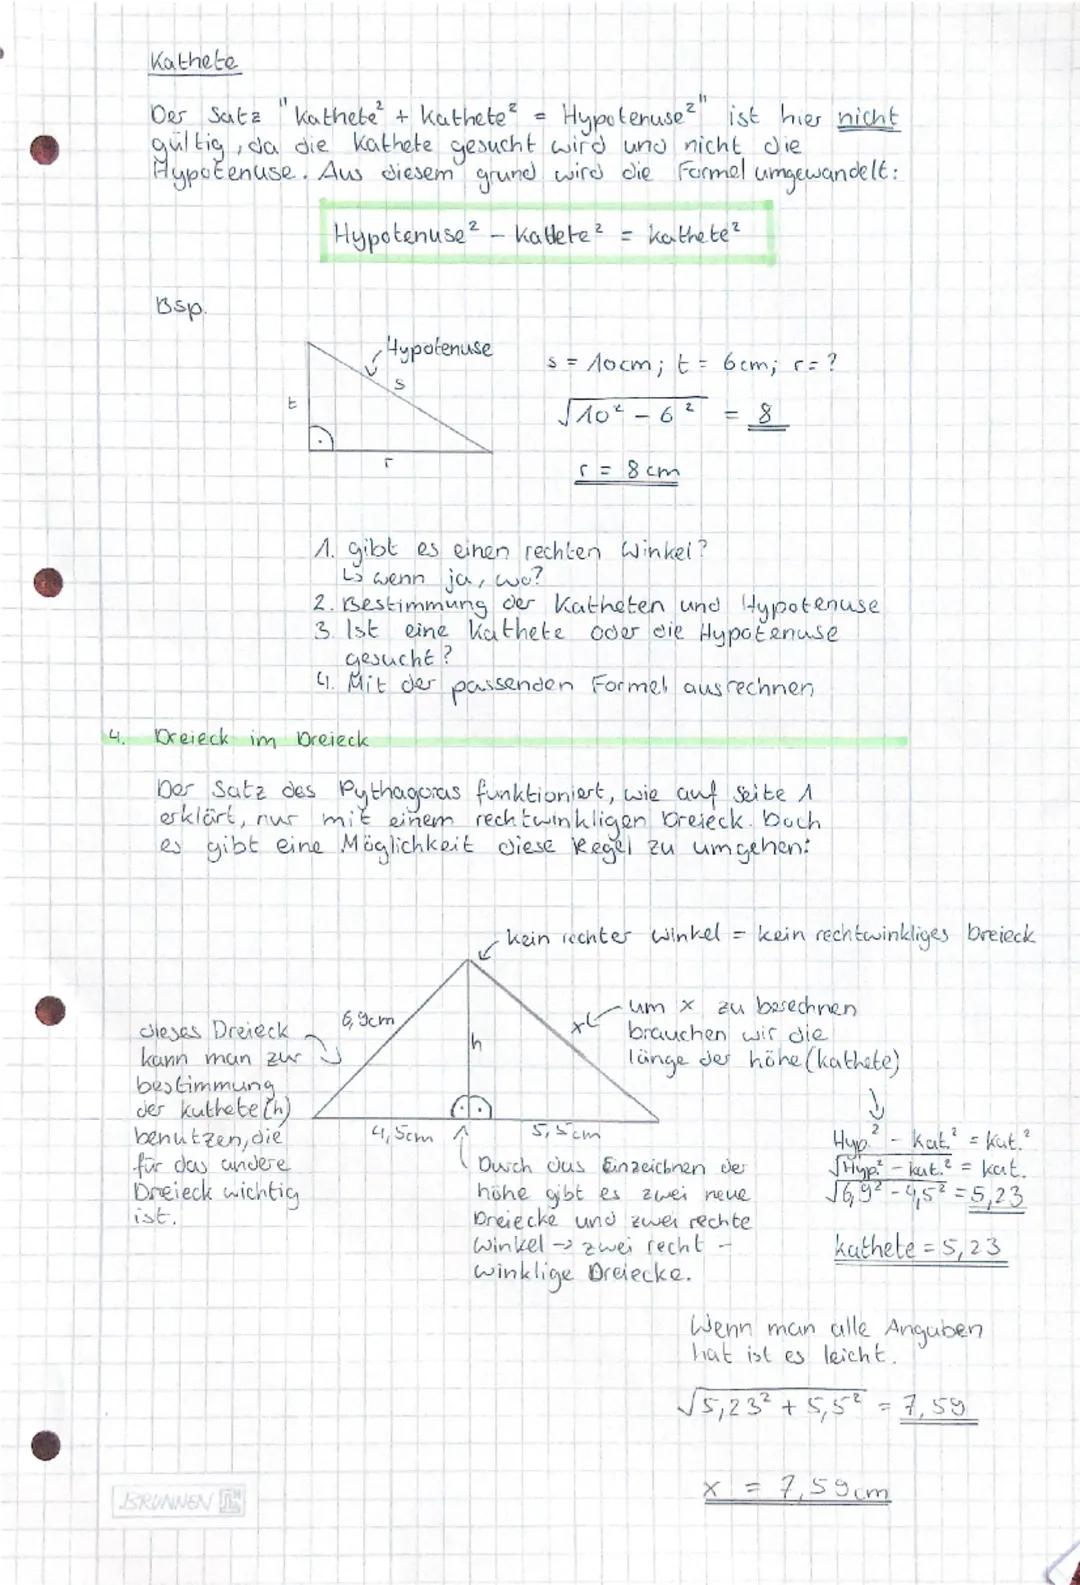 Kathete
Der Satz "Kathete² + Kathete² = Hypotenuse²" ist hier nicht
gültig, da die Kathete gesucht wird und nicht die
Hypotenuse. Aus diesem grund wird die Formel umgewandelt:
Hypotenuse² - Kathete² = Kathete²
Bsp.
Hypotenuse
s = 10cm; t = 6cm; r = ?
s
t
√10² - 6² = 8
r
r = 8 cm
1. gibt es einen rechten Winkel?
↳ wenn ja, wo?
2. Bestimmung der Katheten und Hypotenuse
3. Ist eine Kathete oder die Hypotenuse
gesucht?
4. Mit der passenden Formel ausrechnen
4. Dreieck im Dreieck
Der Satz des Pythagoras funktioniert, wie auf Seite 1
erklärt, nur mit einem rechtwinkligen Dreieck. Doch
es gibt eine Möglichkeit diese Regel zu umgehen:
kein rechter Winkel = kein rechtwinkliges Dreieck
6,9cm
x
h
4,5cm
5,5cm
dieses Dreieck
kann man zur
bestimmung
der Kathete(h)
benutzen, die
für das andere
Dreieck wichtig
ist.
um x zu berechnen
brauchen wir die
länge der höhe (kathete)
Durch das Einzeichnen der
höhe gibt es zwei neue
Dreiecke und zwei rechte
Winkel → zwei recht-
winklige Dreiecke.
Hyp.² - Kat.² = Kat.²
√Hyp.² - kat.² = kat.
√6,9² - 4,5² = 5,23
kathete = 5,23
Wenn man alle Angaben
hat ist es leicht.
√5,23² + 5,5² = 7,59
x = 7,59cm
BRUNNEN